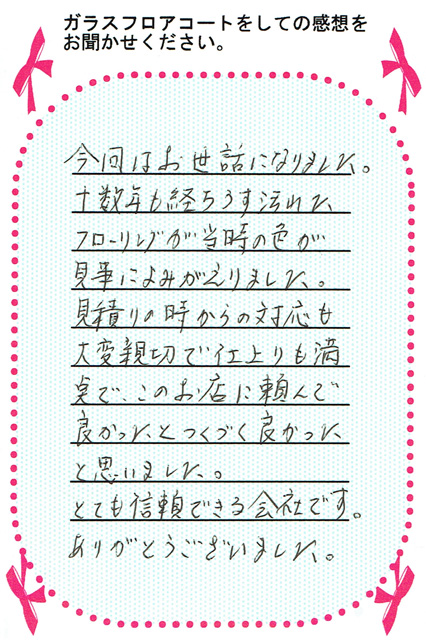 ガラスフロアコートをしての感想を
お聞かせください。
今回はお世話になりました。
十数年も経ちうす汚れた
フローリングが当時の色が
見事によみがえりました。
見積りの時からの対応も
大変親切で仕上りも満
足で、このお店に頼んで
良かったとつくづく良かった
と思いました。
とても信頼できる会社です。
ありがとうございました。